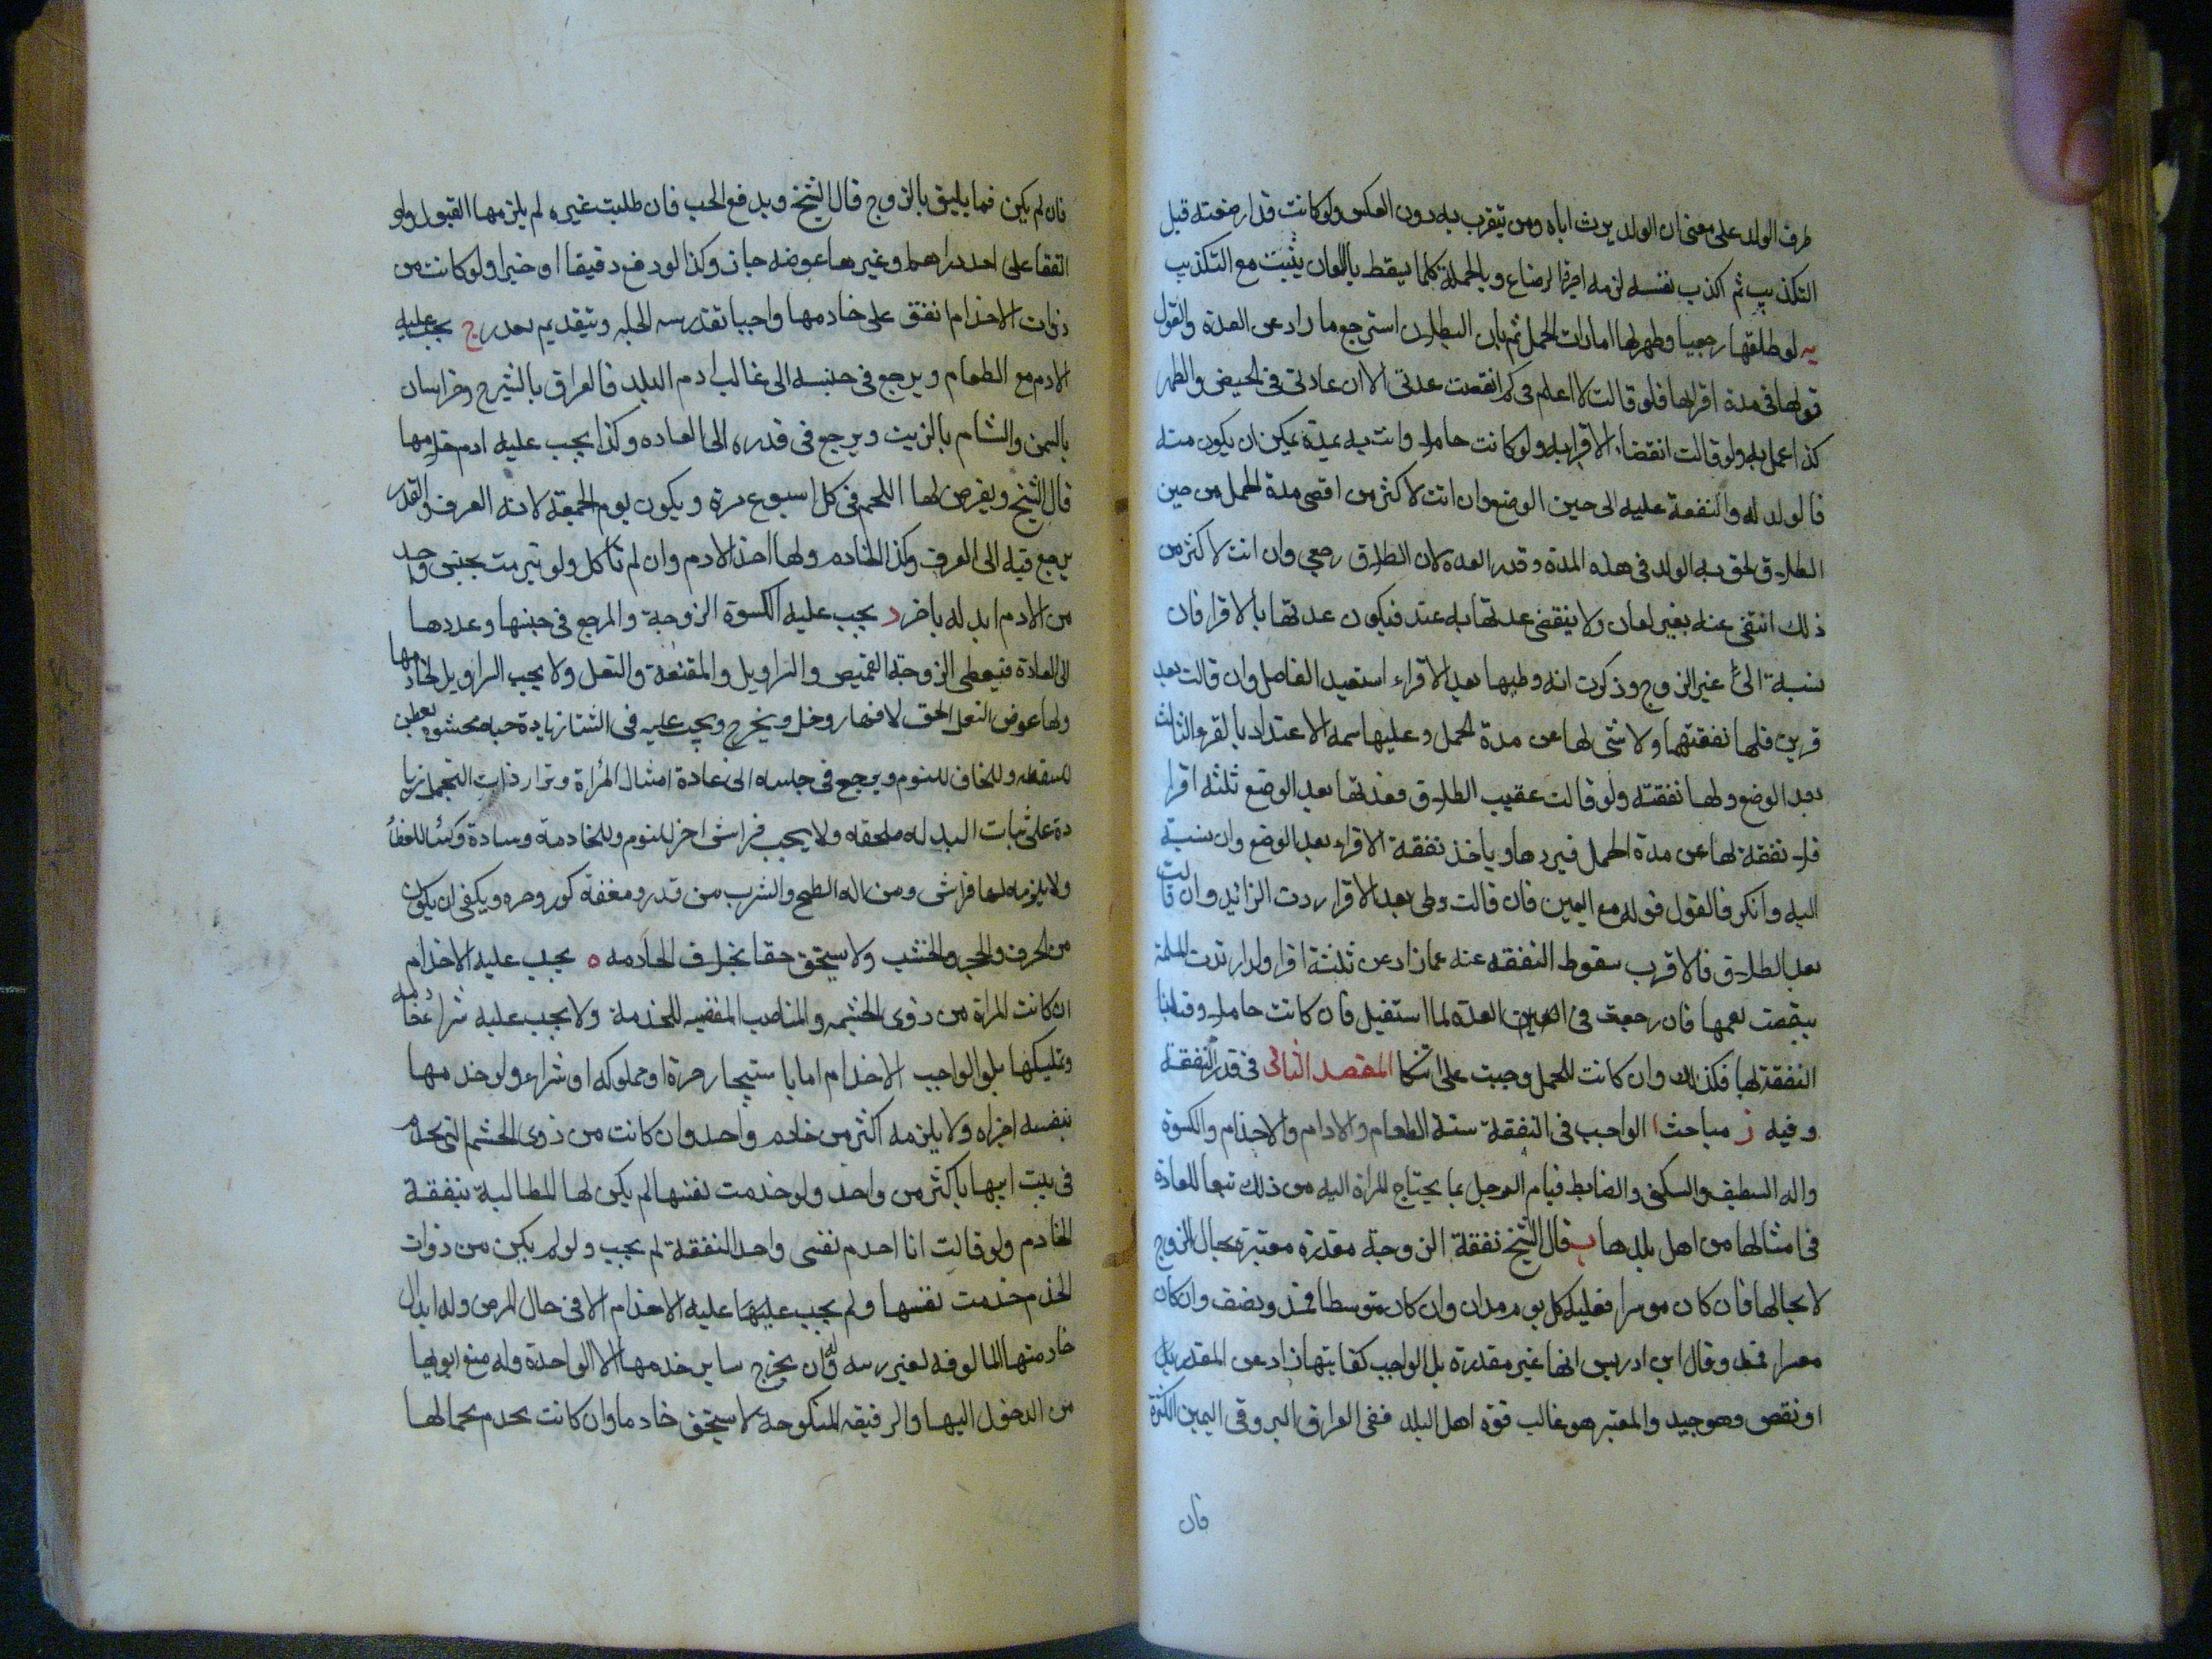 طرف الولد على معنى ان الولد يرث اباه ومن يتقرب به دون العكس ولو كانت قد ارضعته قبل
التكذيب ثم اكذب نفسه لزمه اجرة الرضاع وبالجملة كلما يسقط باللعان يثبت مع التكذيب
يه لو طلقها رجعيا وظهر لها امارات الحمل ثم بان البطلان استرجع ما زاد عن العدة والقول
قولها في مدة اقرائها فلو قالت لا اعلم في كم انقضت عدتي الا ان عادتي في الحيض والطهر
كذا عمل به ولو قالت انقضاء الاقراء به ولو كانت حاملا واتت به بمدة يمكن ان يكون منه
فالولد له والنفقة عليه الى حين الوضع وان اتت لاكثر من اقصى مدة الحمل من حين
الطلاق لحق به الولد في هذه المدة وقدر العدة لان الطلاق رجعي وان اتت لاكثر من
ذلك انتفى عنه بغير لعان ولا ينقضي عدتها به عنه فيكون عدتها بالاقراء فان
نسبته الى غير الزوج وذكرت انه وطيها بعد الاقراء استعيد الفاضل وان قالت بعد
قرئين فلها نفقتهما ولا شئ لها عن مدة الحمل وعليها تتمة الاعتداد بالقرء الثالث
بعد الوضع ولها نفقته ولو قالت عقيب الطلاق فعدتها بعد الوضع ثلثة اقراء
فلا نفقة لها عن مدة الحمل فيردها وياخذ نفقة الاقراء بعد الوضع وان نسبته
اليه وانكر فالقول قوله مع اليمين فان قالت وطي بعد الاقراء ردت الزائد وان قالت
بعد الطلاق فالاقرب سقوط النفقه عنه عما زاد عن ثلثة اقراء ولو ارتدت المسلمة
سقطت نفقتها فان رجعت في العدة لما استقبل فان كانت حاملا وقلنا
النفقة لها فكذلك وان كانت للحمل وجبت على اشكال المقصد الثاني في قدر النفقة
وفيه ز مباحث ا الواجب في النفقة ستة الطعام والادام والاخدام والكسوة
واله التنظيف والسكنى والضابط قيام الرجل بما يحتاج المراة اليه من ذلك تبعا للعادة
في امثالها من اهل بلدها ب قال الشيخ نفقة الزوجة مقدرة معتبرة بحال الزوج
لا بحالها فان كان موسرا فعليه كل يوم مدان وان كان متوسطا فمد ونصف وان كان
معسرا فمد وقال ابن ادريس انها غير مقدرة بل الواجب كفايتها زاد عن المقدر بل
او نقص وهو جيد والمعتبر هو غالب قوة اهل البلد ففي العراق البر وفي اليمن الذرة
فان
فان لم يكن فما يليق بالزوج قال الشيخ ويدفع الحب فان طلبت غيره لم يلزمها القبول ولو
اتفقا على اخذ دراهم او غيرها عوضه جاز وكذا لو دفع دقيقا او خبزا ولو كانت من
ذوات الاخدام انفق على خادمها واجبا بقدر ج يجب عليه
الادم مع الطعام ويرجع في جنسه الى غالب ادم البلد فالعراق بالشيرج وخراسان
بالسمن والشام بالزيت ويرجع في قدره الى العاده وكذا يجب عليه ادم خادمها
قال الشيخ ويفرض لها اللحم في كل اسبوع مرة ويكون يوم الجمعة لانه العرف والقدر
يرجع فيه الى العرف وكذا الخادم ولها اخذ الادم وان لم تاكل ولو تبرمت بجنس واحد
من الادم ابدله باخر د يجب عليه الكسوة الزوجة والمرجع في جنسها وعددها
الى العادة فيعطى الزوجة القميص والسراويل والمقنعة والنعل ولا يجب السراويل لخادمها
ولها عوض النعل الخف لانها تدخل وتخرج ويجب عليه في الشتا زيادة جبه محشوه بقطن
لليقظه وللحاف للنوم ويرجع في جنسه الى عادة امثال المراة وتزاد ذات التجمل زيا
دة على ثياب البذلة ملحفه ولا يجب فراش اخر للنوم وللخادمة وسادة وكساء للغطاء
ولا يلزمه لها فراش ومن اله الطبخ والشرب من قدر ومغرفة كوز وجره ويكفي ان يكون
من الخزف والحجر والخشب ولا يستحق خفا بخلاف الخادمه ه يجب عليه الاخدام
ان كانت المراة من ذوي الحشمه والمناصب المقتضيه للخدمة ولا يجب عليه شراء خادمه
وتمليكها بل الواجب الاخدام اما باستيجار حرة او مملوكه او شراء ولو خدمها
بنفسه اجزاه ولا يلزمه اكثر من خادم واحد وان كانت من ذوي الحشم التي تخدم
في بيت ابيها باكثر من واحد ولو خدمت نفسها لم يكن لها المطالبة بنفقة
الخادم ولو قالت انا اخدم نفسي واخذ النفقة لم يجب ولو لم يكن من ذوات
الخدم خدمت نفسها ولم يجب عليها عليه الاخدام الا في حال المرض وله ابدال
خادمتها المالوفه لغير ريبه وله ان يخرج ساير خدمها الا الواحدة وله منع ابويها
من الدخول اليها والرقيقه المنكوحة لا يستحق خادما وان كانت تخدم بجمالها